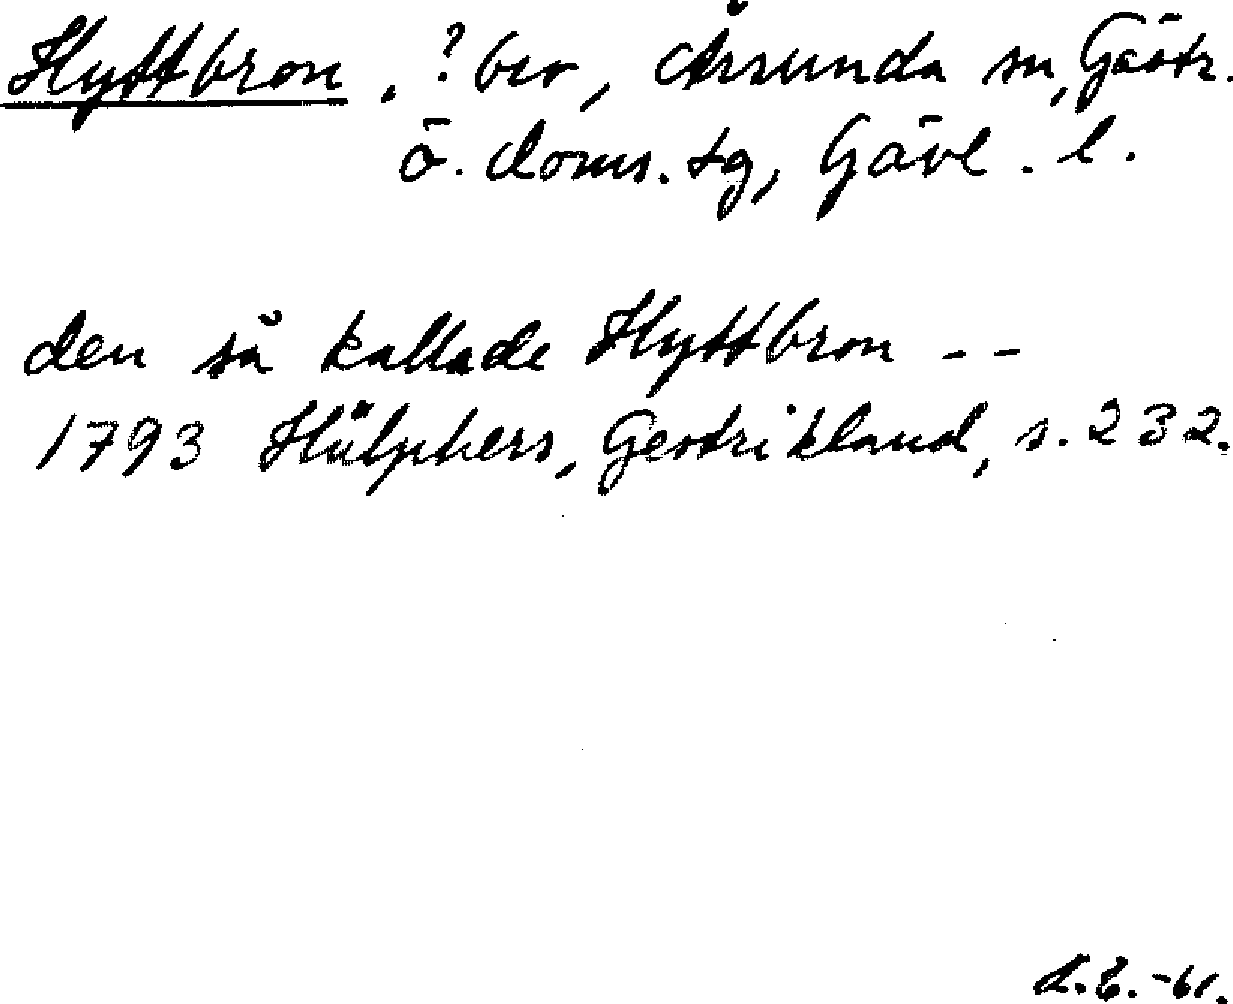 Hyttbron, ?bro, Årsunda sn, Gästr.
ö. doms. sg, Gävl. l.
den så kallade Hyttbron - -
1793 Hülphers, Gestrikland, s. 232.